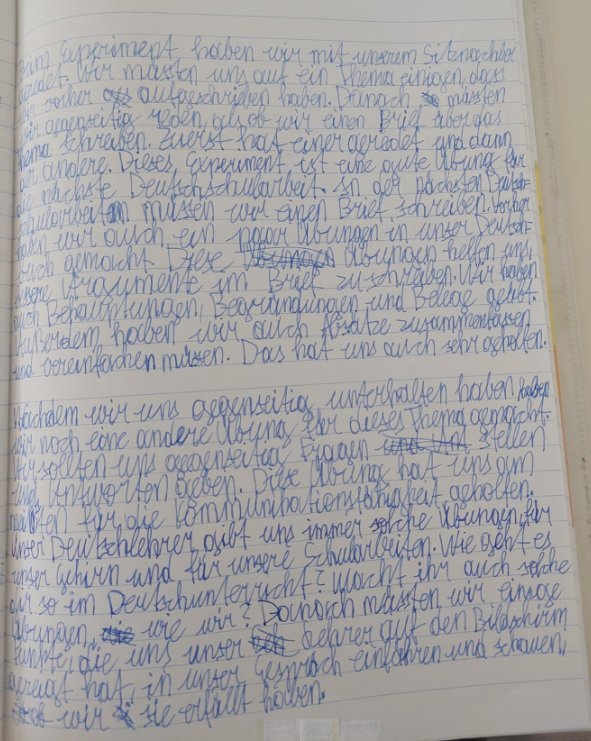 Beim Experiment haben wir mit unserem Sitznachbar
geredet. Wir mussten uns auf ein Thema einigen, dass
wir vorher aufgeschrieben haben. Danach mussten
wir gegenseitig reden, als ob wir einen Brief über das
Thema schreiben. Zuerst hat einer geredet und dann
der andere. Dieses Experiment ist eine gute Übung für
die nächste Deutschschularbeit. In der nächsten Deutsch-
schularbeit müssen wir einen Brief schreiben. Vorher
haben wir auch ein paar Übungen in unser Deutsch-
buch gemacht. Diese Übungen helfen uns,
unsere Argumente im Brief zu schreiben. Wir haben
auch Behauptungen, Begründungen und Belege geübt.
Außerdem haben wir auch Absätze zusammenfassen
und vereinfachen müssen. Das hat uns auch sehr geholfen.
Nachdem wir uns gegenseitig unterhalten haben haben
wir noch eine andere Übung für dieses Thema gemacht.
Wir sollten uns gegenseitig Fragen stellen
und Antworten geben. Diese Übung hat uns am
meisten für die Kommunikationsfähigkeit geholfen.
Unser Deutschlehrer gibt uns immer solche Übungen für
unser Gehirn und für unsere Schularbeiten. Wie geht es
dir so im Deutschunterricht? Macht ihr auch solche
Übungen, wie wir? Danach mussten wir einige
Punkte, die uns unser Lehrer auf den Bildschirm
gezeigt hat, in unser Gespräch einführen und schauen,
ob wir sie erfüllt haben.